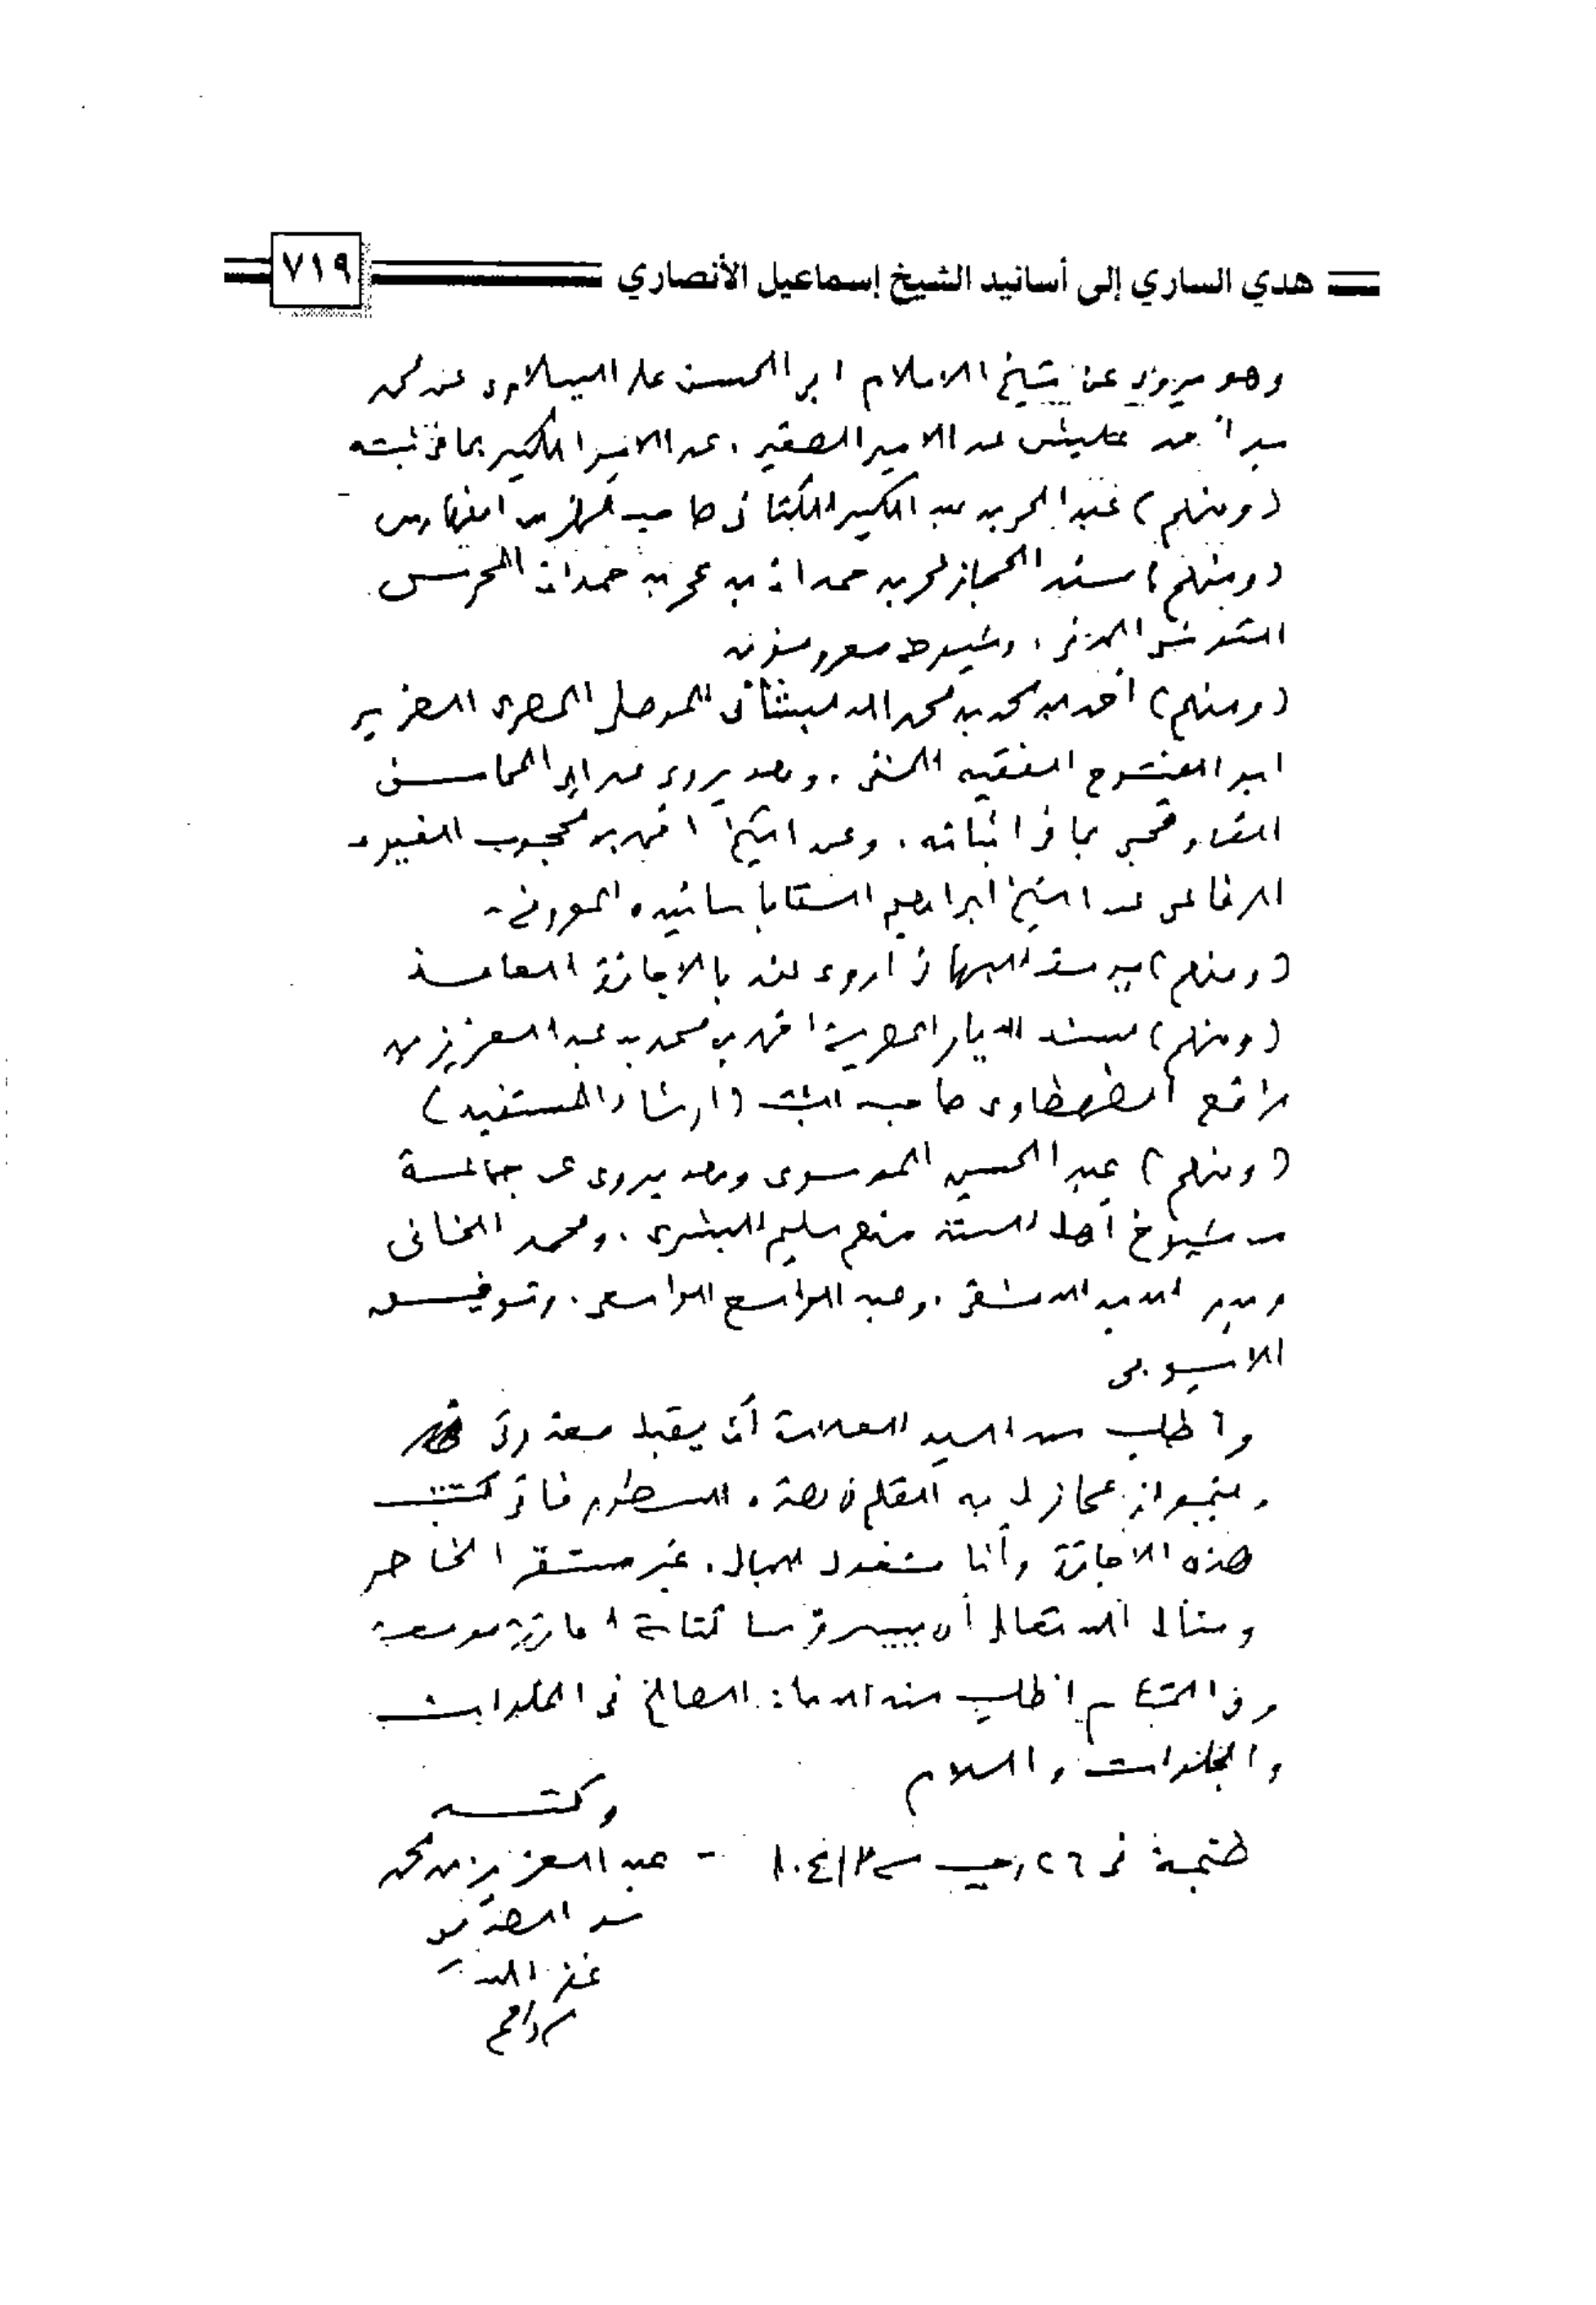 هدي الساري إلى أسانيد الشيخ إسماعيل الأنصاري ٧١٩
وهو يروى عن شيخ الاسلام ابو الحسن على الببلاوى عن محمد
بن أحمد عليش عن الامير الصغير ، عن الامير الكبير بما فى ثبته
(ومنهم) عبد الحى بن عبد الكبير الكتانى صاحب فهرس الفهارس
(ومنهم) مسند الحجاز عمر بن حمدان بن عمر بن حمدان المحرسى
التونسى المدنى ، وشيوخه معروفون
(ومنهم) أحمد بن محمد بن محمد الموصلى المصرى الضرير
ابو الفتوح الفقيه الحنفى . وهو يروى عن ابى المحاسن
القاوقجى بما فى اثباته . وعن الشيخ احمد بن محجوب الفيومى
الرفاعى عن الشيخ ابراهيم السقا باسانيده المعروفة -
(ومنهم) اروى عنه بالاجازة العامة
(ومنهم) مسند الديار المصرية احمد بن محمد بن عبد العزيز بن
رافع الطهطاوى صاحب الثبت (ارشاد المستفيد)
(ومنهم) عبد الحسين الموسوى وهو يروى عن جماعة
من شيوخ أهل السنة منهم سليم البشرى . ومحمد الخانى
وبدر الدين الدمشقى . وعبد الواسع الواسعى . وتوفيق
الايوبى
واطلب من السيد العلامة أن يقبل معذرتى
القلم فى هذه السطور فانى كتبت
هذه الاجازة وأنا مشغول البال . غير مستقر الخاطر
ونسأل الله تعالى أن ييسر كتابة اجازة موسعة
وفى الختام اطلب منه الدعاء الصالح فى الخلوات
والجلوات والسلام
وكتبه
طنجة فى ٢٦ رجب سنة ١٤٠٣ - عبد العزيز بن محمد
بن الصديق
غفر الله له
آمين